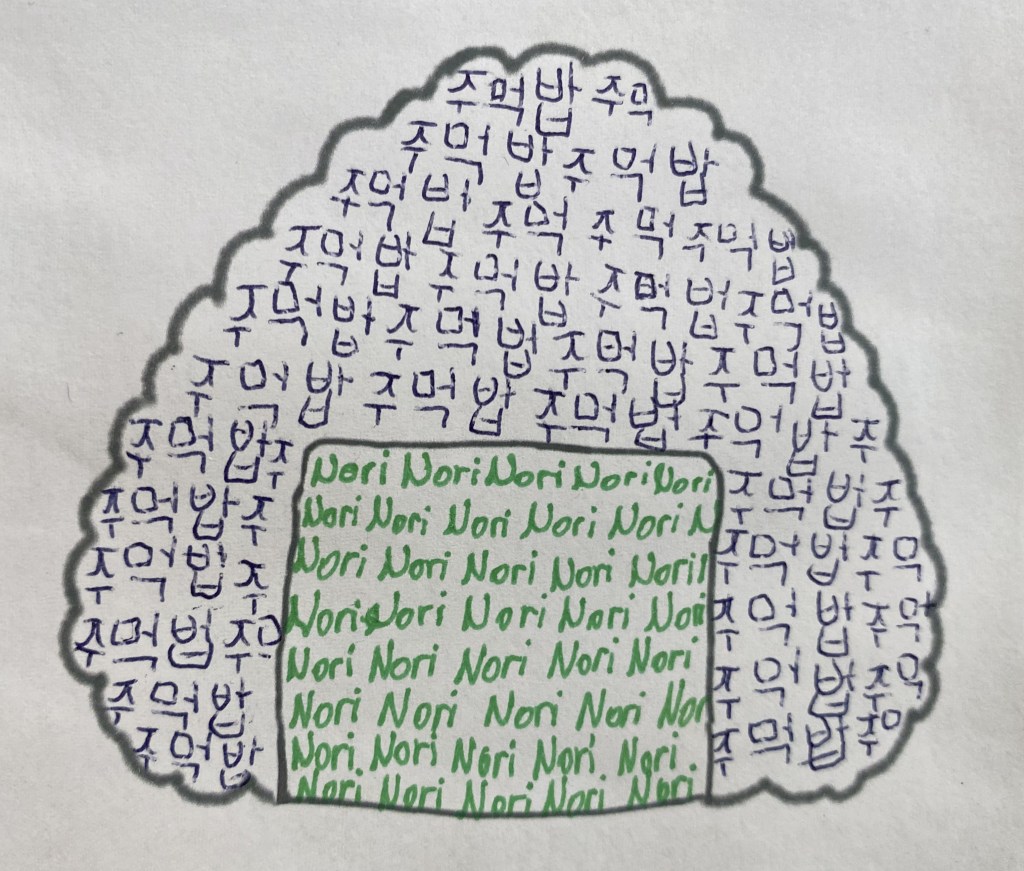 주먹밥 주먹
주먹밥 주먹밥
주먹밥 주먹 주먹 주먹밥
주먹밥 주먹밥 주먹밥 주먹밥
주먹밥 주먹밥 주먹밥 주먹밥
주먹밥 주먹밥 주먹밥 주먹밥 주
주먹밥 주
주먹밥 주
주먹밥 주
주먹밥 주먹
주먹밥
주먹밥
Nori Nori Nori Nori Nori
Nori Nori Nori Nori Nori N
Nori Nori Nori Nori Nori
Nori Nori Nori Nori Nori
Nori Nori Nori Nori Nori
Nori Nori Nori Nori Nor
Nori Nori Nori Nori Nori
Nori Nori Nori Nori Nori
주먹밥 주
주먹밥 주먹
주먹밥 주먹
주먹밥 주먹
주먹밥 주먹